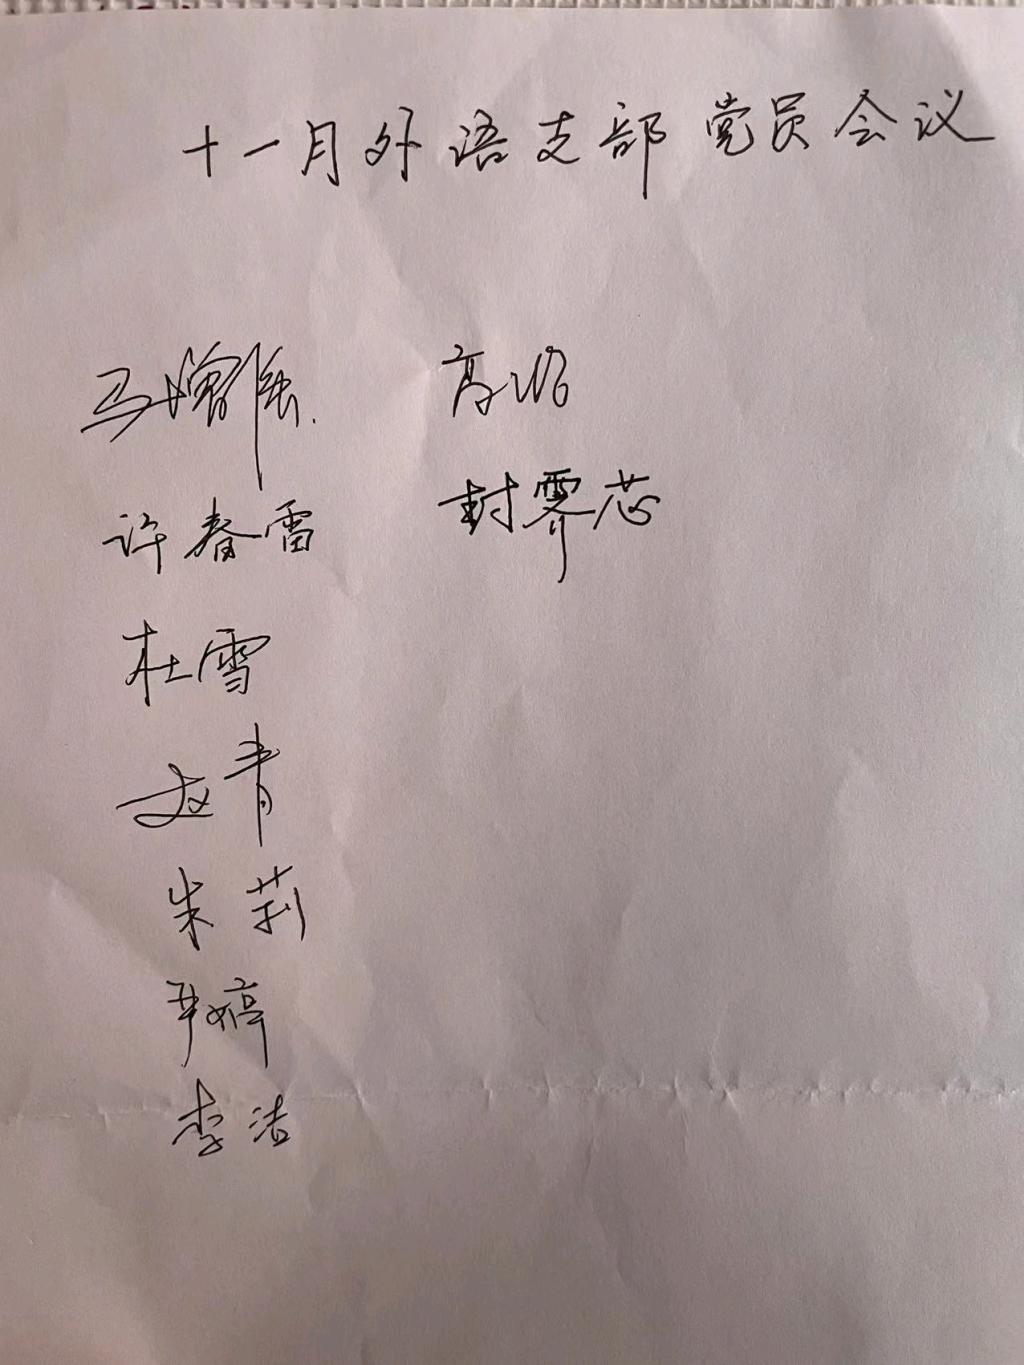 十一月外语支部党员会议
马增强
高
许春雷
封霁芯
杜雪
赵青
朱莉
尹婷
李洁